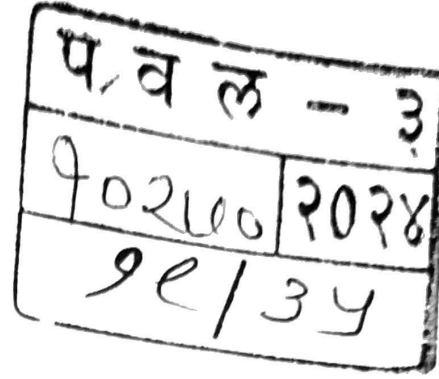 प व ल - ३
१०२५० २०२४
१९/३५